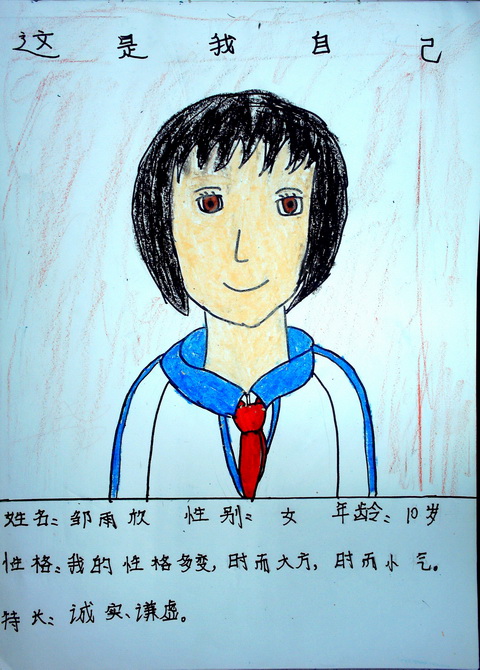 这是我自己
姓名:邹雨放 性别:女 年龄:10岁
性格:我的性格多变,时而大方,时而小气。
特长:诚实、谦虚。